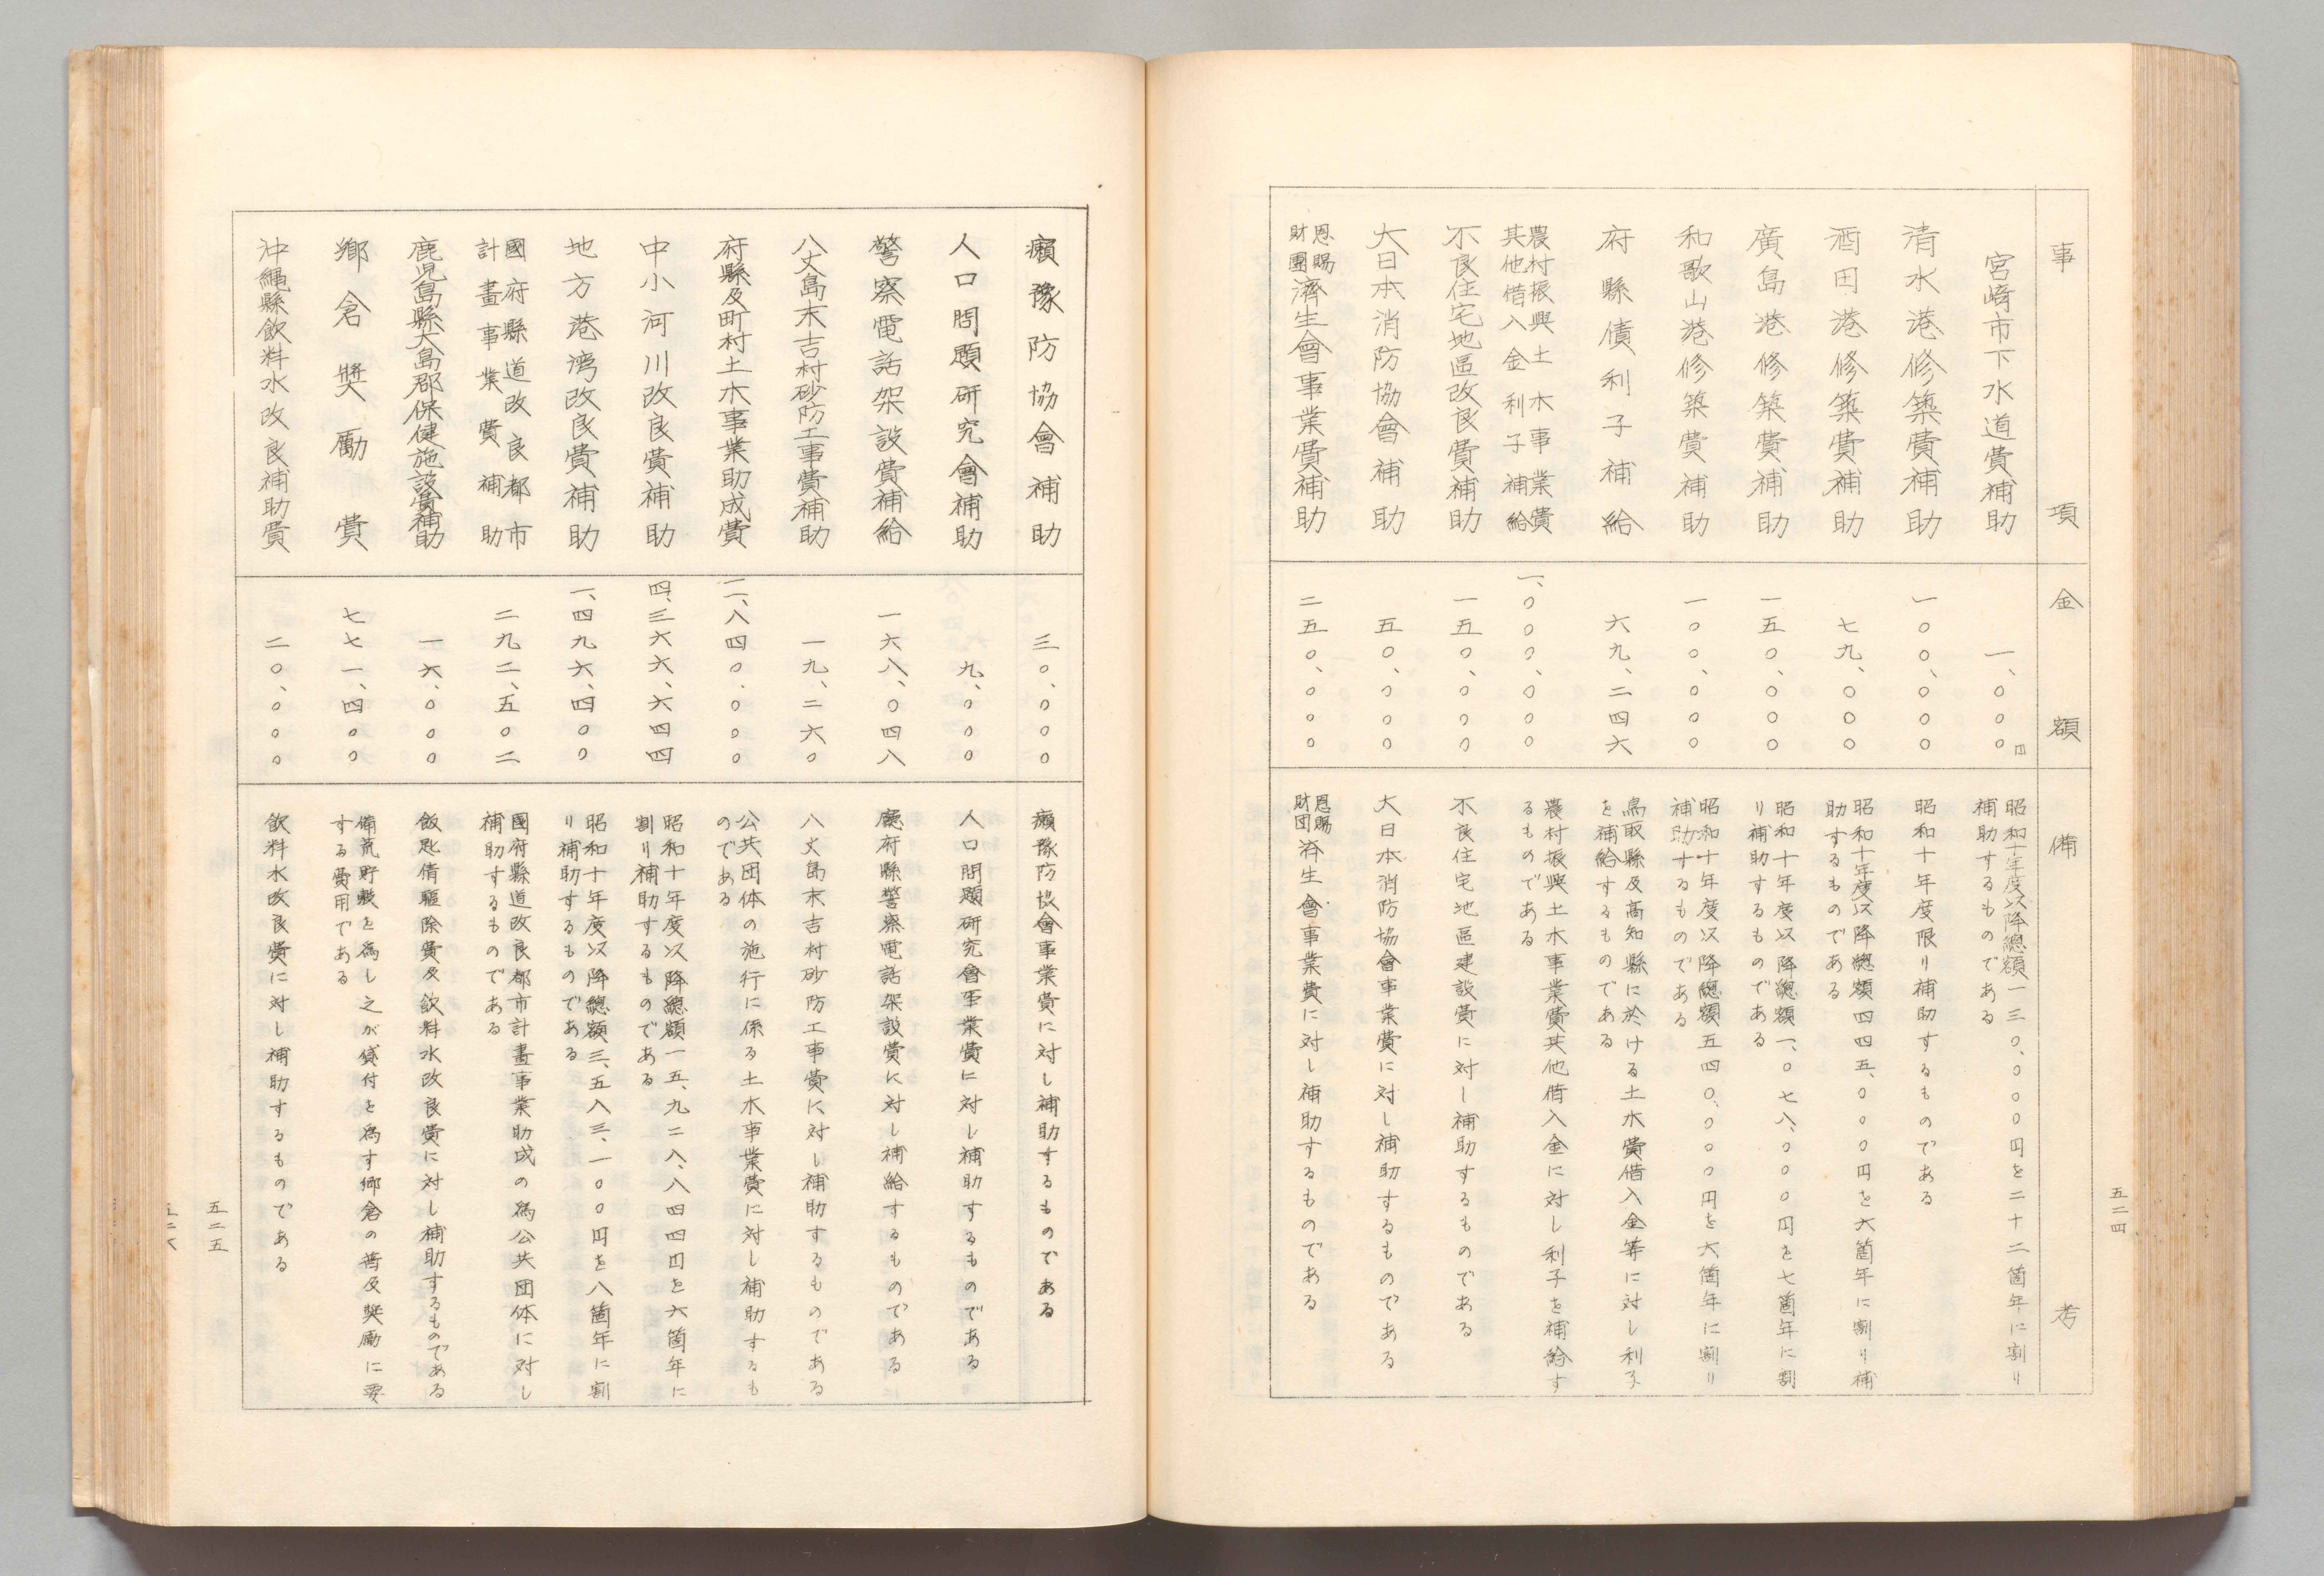 五二四
事項
金額
備考
宮﨑市下水道費補助
一、〇〇〇円
昭和十年度以降總額一三〇、〇〇〇円を二十二箇年に割り
補助するものである
清水港修築費補助
一〇〇、〇〇〇
昭和十年度限り補助するものである
酒田港修築費補助
七九、〇〇〇
昭和十年度以降總額四四五、〇〇〇円を六箇年に割り補
助するものである
廣島港修築費補助
一五〇、〇〇〇
昭和十年度以降總額一、〇七八、〇〇〇円を七箇年に割
り補助するものである
和歌山港修築費補助
一〇〇、〇〇〇
昭和十年度以降總額五四〇、〇〇〇円を六箇年に割り
補助するものである
府縣債利子補給
六九、二四六
鳥取縣及高知縣に於ける土木費借入金等に対し利子
を補給するものである
農村振興土木事業費
其他借入金利子補給
一、〇〇〇、〇〇〇
農村振興土木事業費其他借入金に対し利子を補給す
るものである
不良住宅地區改良費補助
一五〇、〇〇〇
不良住宅地區建設費に対し補助するものである
大日本消防協會補助
五〇、〇〇〇
大日本消防協會事業費に対し補助するものである
恩賜
財團濟生會事業費補助
二五〇、〇〇〇
恩賜
財団済生會事業費に対し補助するものである
癩豫防協會補助
三〇、〇〇〇
癩豫防協會事業費に対し補助するものである
人口問題研究會補助
九、〇〇〇
人口問題研究會事業費に対し補助するものである
警察電話架設費補給
一六八、〇四八
廳府縣警察電話架設費に対し補給するものである
八丈島末吉村砂防工事費補助
一九、二六〇
八丈島末吉村砂防工事費に対し補助するものである
府縣及町村土木事業助成費
二、八四〇、〇〇〇
公共団体の施行に係る土木事業費に対し補助するも
のである
中小河川改良費補助
四、三六六、六四四
昭和十年度以降總額一五、九二八、八四四円を六箇年に
割り補助するものである
地方港湾改良費補助
一、四九六、四〇〇
昭和十年度以降總額三、五八三、一〇〇円を八箇年に割
り補助するものである
國府縣道改良都市
計畫事業費補助
二九二、五〇二
國府縣道改良都市計畫事業助成の爲公共団体に対し
補助するものである
鹿児島縣大島郡保健施設費補助
一六、〇〇〇
飯匙倩驅除費及飲料水改良費に対し補助するものである
鄕倉奬勵費
七七一、四〇〇
備荒貯穀を爲し之が貸付を爲す鄕倉の普及奬勵に要
する費用である
沖縄縣飲料水改良補助費
二〇、〇〇〇
飲料水改良費に対し補助するものである
五二五
五二六